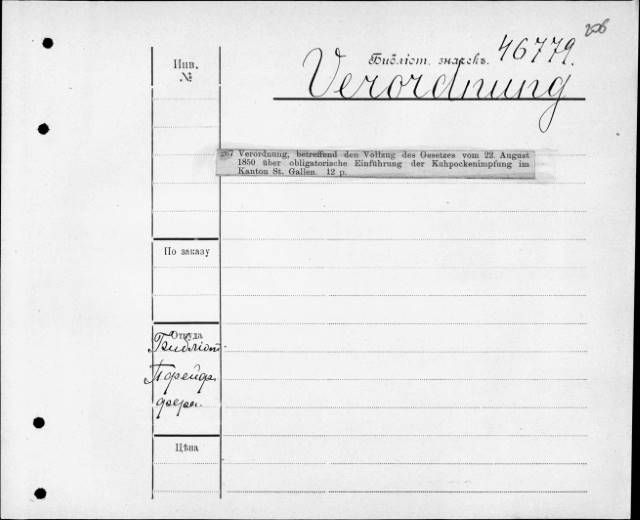 206
46779.
Библіот. значекъ.
Verordnung
Инв.
№
267 Verordnung, betreffend den Vollzug des Gesetzes vom 22. August
1850 über obligatorische Einführung der Kuhpockenimpfung im
Kanton St. Gallen. 12 p.
По заказу
Откуда
Библіот.
Цѣна